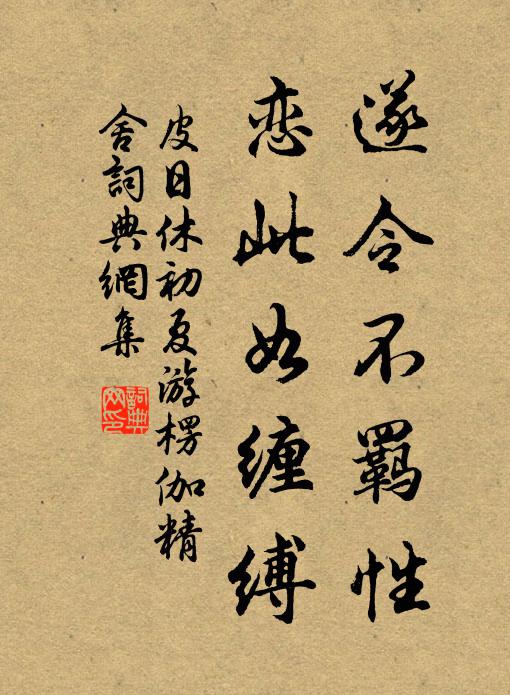 遂令不羈性
恋此如纏縛
皮日休初夏游楞伽精
舍詞典網集
詞典
网印